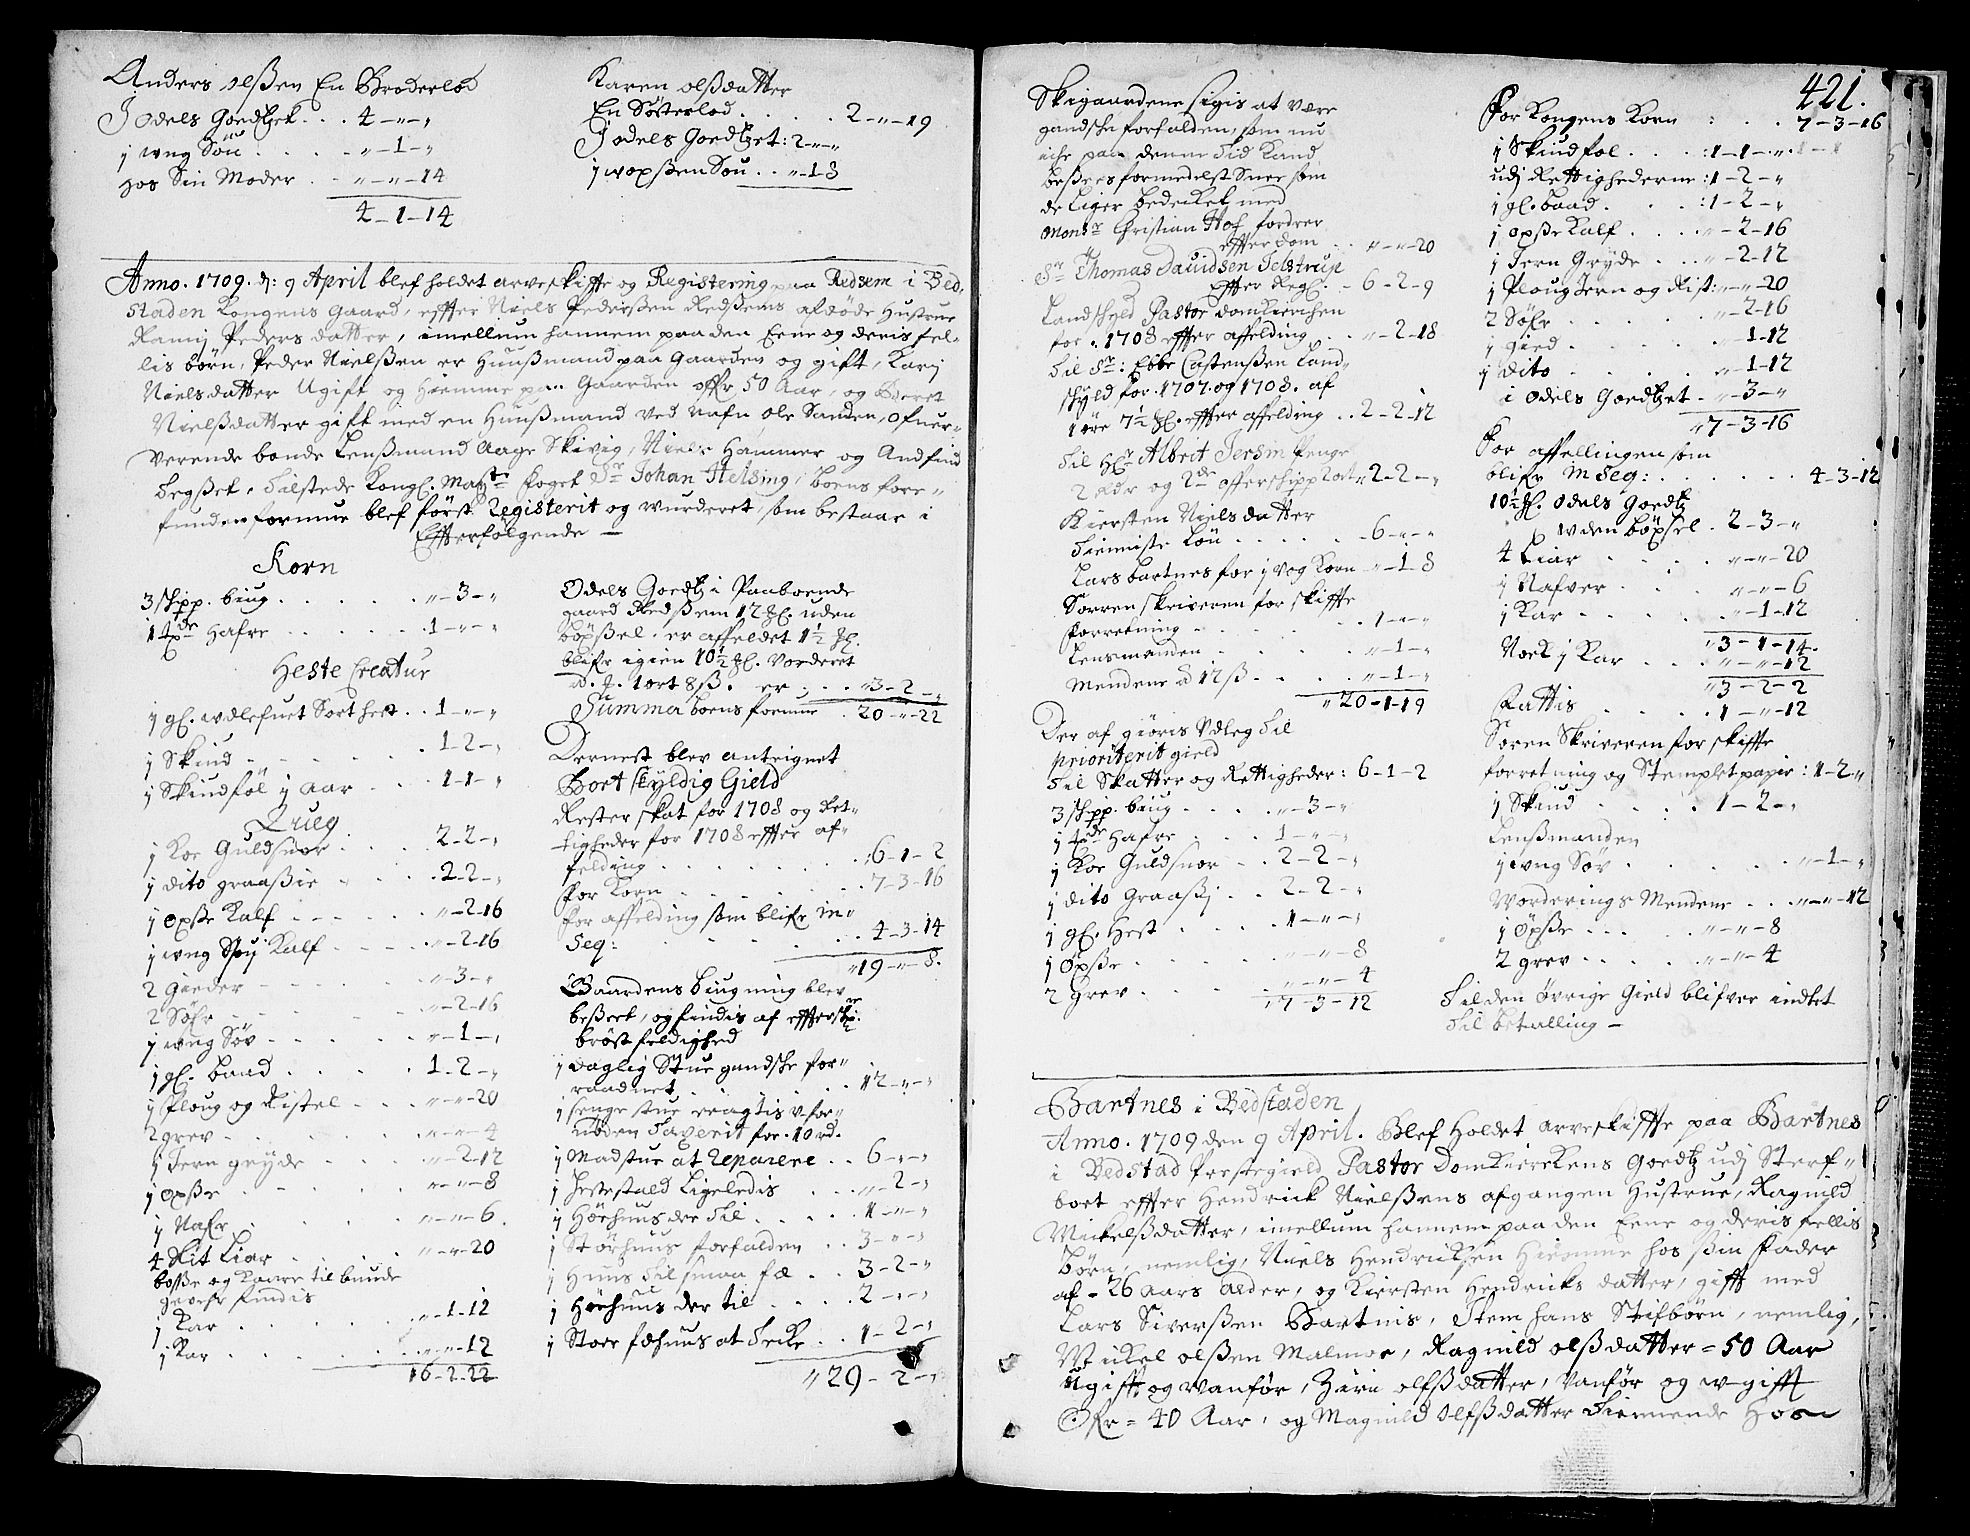 Anders olßen En Broderlod
J odels Goedtzet . . . 4 - „ - „
1 ung Söu . . . . . „ - 1 - „
Hos Sin Moder . . „ - „ - 14
4 - 1 - 14
Karen olßdatter
En Sösterlod . . . . . 2 - „ - 19
J odels Goedtzet : 2 - „ - „
1 woxßen Söu . . „ - 18
Anno. 1709. d: 9 April blef holdet arveskiffte og Registering paa Redsem i Bed,
staden Kongens Gaard, effter Niels Pederßen Redßems afdöde Hustrue
Ramij Peders datter, imellum hannem paa den Eene og deris fel-
lis börn, Peder Nielßen er Huußmand paa Gaarden og gift, Karj
Nielsdatter Ugift og Hiemme paa Gaarden offr 50 Aar, og Beret
Nielßdatter gift med en Huußmand ved nafn ole Sanden, ofuer-
verende bonde Lenßmand Aage Skivig, Niels Hammer og Andfind
Segßet, Tilstede Kongl. Maysts foget Sr Johan Helsing, boens fore-
funden formue blef först Registerit og wurderet, som bestaar i
Effterfölgende —
Korn
3 skipp. biug . . . . . „ - 3 - „
1 tde Hafre . . . . . 1 - „ - „
Heste Creatur
1 gl. wdlefuet Sort hest . . 1 - „ - „
1 Skiud . . . . . 1 - 2 - „
1 Skiudföl 1 aar . . . 1 - 1 - „
Quieg
1 Koe Guldsnoe . . . . 2 - 2 - „
1 dito graaßie . . . . 2 - 2 - „
1 oxße Kalf . . . . . „ - 2 - 16
1 ung Qvij Kalf . . . . „ - 2 - 16
2 Gieder . . . . . „ - 3 - „
2 Söfr . . . . . „ - 2 - 16
1 ung Söv . . . . . „ - 1 - „
1 gl. baad . . . . . 1 - 2 - „
1 Ploug og Ristel . . . „ - „ - 20
2 grev . . . . . „ - „ - 4
1 Jern gryde . . . . „ - 2 - 12
1 öxße . . . . . „ - „ - 8
1 Nafr . . . . . „ - „ - 6
4 Slit Liar . . . . „ - „ - 20
boßße og Kaare til buude
gevehr findis
1 Kar . . . . . „ - 1 - 12
1 Kar . . . . . „ - „ - 12
16 - 2 - 22
Odels Goedtz i Paaboende
gaard Redßem 12 Hl. uden
böxßel. er affeldet 1½ Hl.
blifr igien 10½ Hl. vorderet
a. H. 1 ort 8 ß. er . . . „ 3 - 2 - „
Summa boens formue . 20 - „ - 22
Dernest blev anteignet
Bort skyldig Gield
Rester skat for 1708 og Ret-
tigheder for 1708 effter af-
felding . . . . . 6 - 1 - 2
For Korn . . . . . 7 - 3 - 16
for affelding som blifr in-
seq: . . . . . 4 - 3 - 14
„ 19 - „ - 8.
Gaardens biugning blev
beßeet, og findis af efferskr:
bröstfeldighed
1 daglig Stue gandske for-
raadnet . . . . . 12 - „ - „
1 senge stue ragtis v-for-
nöden Taxerit for. 10 rd.
1 Madstue at Reparere . . 6 - „ - „
1 Hestestald Ligeledis . . . „ - 2 - „
1 Höehuus der Til . . . . 1 - „ - „
1 Störhuus forfalden . . 3 - „ - „
1 Huus Til smaa fæ . . 3 - 2 - „
1 Höehuus der til . . . . 2 - „ - „
1 Stoer fæhuus at Tecke . . 1 - 2 - „
„ 29 - 2 - „
421.
Skigaardene sigis at være
gandske forfalden, som nu
iche paa denne Tid Kand
beßees formedelst Snee som
de Liger bedecket med
Monsr Christian Hof fordrer
effter dom . . „ - „ - 20
Sr Thomas Dauidsen Telstrup
Effter Regl. - 6 - 2 - 9
Landskyld Pastor domkierchen
for. 1708 effter affelding . . „ - 2 - 18
Til Sr: Ebbe Castenßen Land-
skyld for. 1707. og 1708. af
1 öre 7½ Hl. effter affelding . . 2 - 2 - 12
Til Hr Albrit Jersin Penge
2 Rdr og 2de 2 - 2 - „
Kiersten Niels datter
Tienniste Lön . . . . . 6 - „ - „
Lars bartnes for 1 vog Korn „ - 1 - 8
Sörren skriveren for skiffte
forretning . . . . . 1 - „ - „
Lensmanden . . . . „ - 1 - „
Mendene a 12 ß . . . . „ - 1 - „
„ 20 - 1 - 19
Der af giöris Vdleg Til
prioriterit gield
Til Skatter og Rettigheder : 6 - 1 - 2
3 skipp. biug . . . . „ - 3 - „
1 tde Hafre . . . 1 - „ - „
1 Koe Guldsnoe . . 2 - 2 - „
1 dito Graaßj . . 2 - 2 - „
1 gl. Hest . . . . 1 - „ - „
1 Öxße . . . . . „ - „ - 8
2 Grev . . . . . „ - „ - 4
„ 7 - 3 - 12
For Kongens Korn : . . . 7 - 3 - 16
1 Skiudföl . . . : 1 - 1 - „
udj Rettighederne : 1 - 2 - „
1 gl. baad . . . : 1 - 2 - „
1 oxße Kalf . . . . „ - 2 - 16
1 Jern Gryde . . . „ - 2 - 12
1 Ploug Jern og Rist: „ - „ - 20
2 Söfr . . . . . „ - 2 - 16
1 gied . . . . . „ 1 - 12
1 dito . . . . . „ 1 - 12
i odels Goedtzet . „ - 3 - „
„ 7 - 3 - 16
For affellingen som
blifr in seq: . . . . . 4 - 3 - 12
10½ Hl. odels Goedtz
uden böxsel . 2 - 3 - „
4 Liar . . . . „ - „ - 20
1 Nafver . . . . „ - „ - 6
1 Kar . . . . . „ - 1 - 12
„ 3 - 1 - 14.
Noch 1 Kar . . . „ - „ - 12
„ 3 - 2 - 2
Fattis . . . . . 1 - „ - 12
Sören Skriveren for skiffte
forretning og Stemplet papir : 1 - 2 - „
1 Skiud . . . . . 1 - 2 - „
Lenßmanden
1 ung Söv . . . . . „ - 1 - „
Worderings Mendene . . . „ - „ - 12
1 Öxße . . . . . „ - „ - 8
2 grev . . . . . „ - „ - 4
Til den övrige Gield blifver indtet
Til betalling —
Bartnes i Bedstaden
Anno. 1709 den 9 April. Blef Holdet arveskiffte paa Bartnes
i Bedstad Prestegield Pastor Domkierckens Goedtz udj Sterf-
boet effter Hendrick Nielßens afgangen Hustrue, Ragnild
Mickelßdatter, imellum hannem paa den Eene og deris fellis
Börn, nemlig, Niels Hendricksen Hiemme hos sin fader
af - 26 aars alder, og Kiersten Hendricks datter, gifft med
Lars Siverßen Bartnis, Item hans Stifbörn, nemlig,
Mickel olßen Malmoe, Ragnild olßdatter = 50 Aar
Ugifft og vanför, Zirj olfßdatter, vanför og w-gifft
Ofr = 40 Aar, og Magnild olfßdatter Tiennende Hos